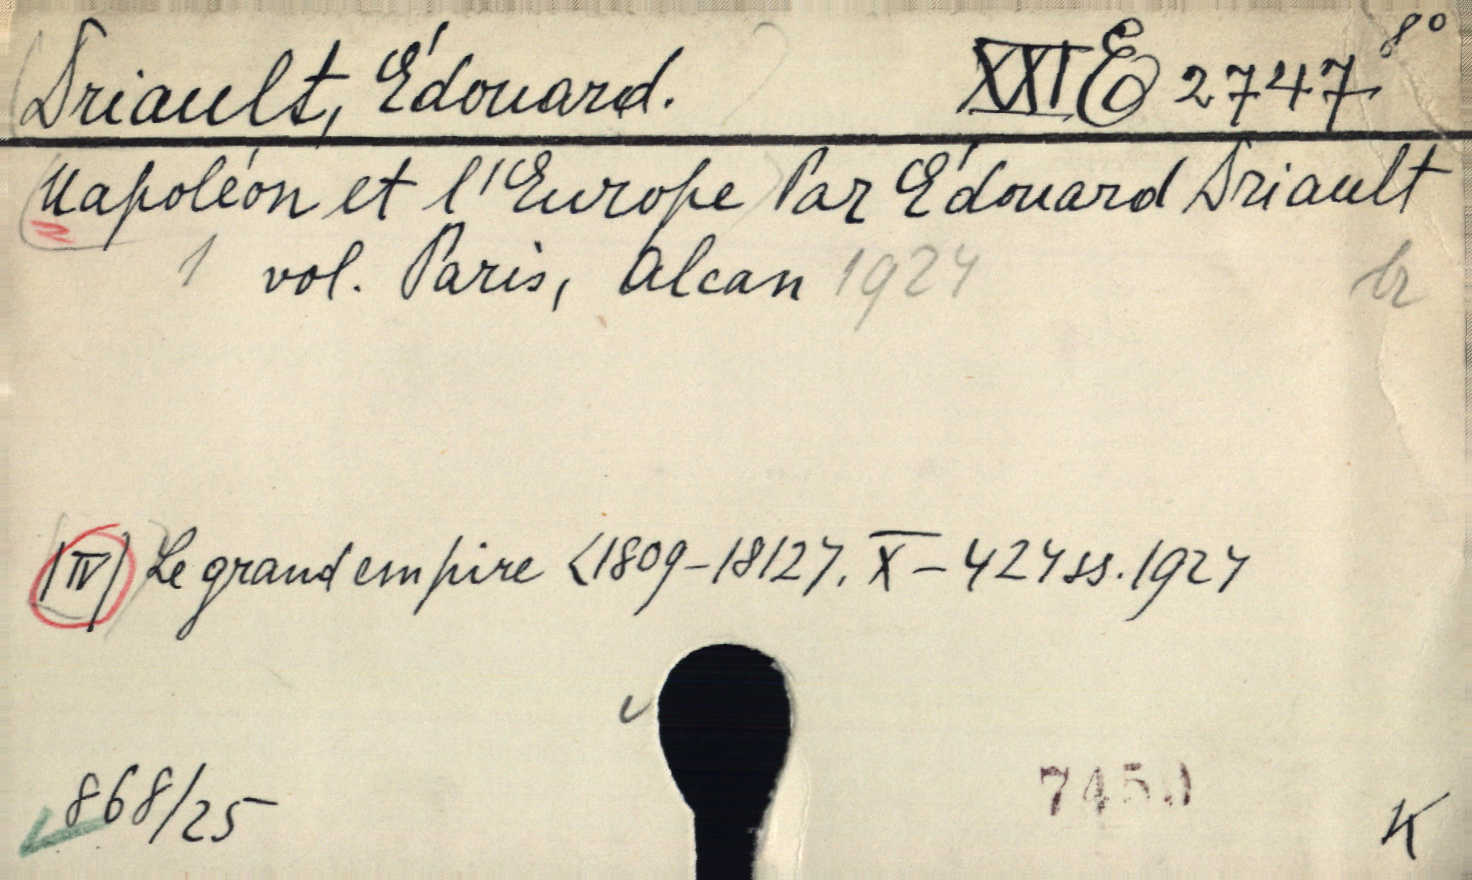 Driault, Édouard. XXI E 2747 8°
Napoléon et l'Europe Par Édouard Driault
1 vol. Paris, Alcan 1924 br
(IV) Le grand empire <1809-1812>. X-424 ss. 1924
868/25
K